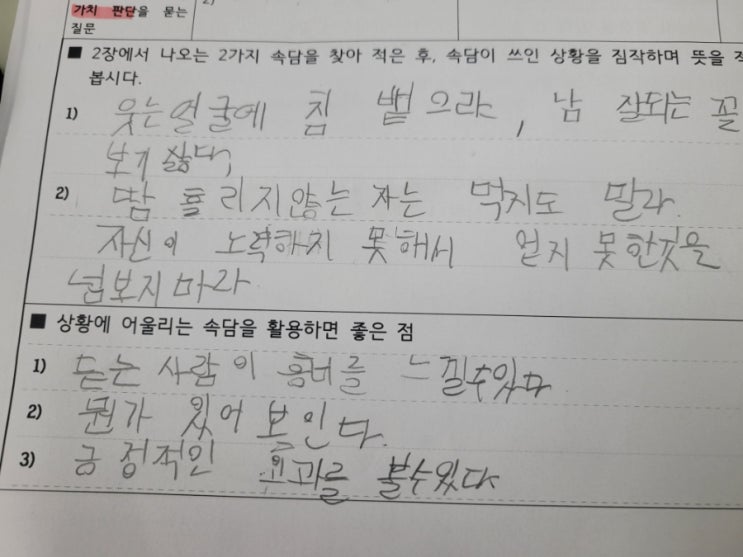 2)
가치 판단을 묻는
질문
■ 2장에서 나오는 2가지 속담을 찾아 적은 후, 속담이 쓰인 상황을 짐작하며 뜻을 적
봅시다.
1) 웃는얼굴에 침 뱉으라, 남 잘되는 꼴
보기 싫다,
2) 땀 흘리지않는 자는 먹지도 말라.
자신이 노력하지 못해서 얻지 못한것을
넘보지마라
■ 상황에 어울리는 속담을 활용하면 좋은 점
1) 듣는 사람이 를 느낄수있다
2) 뭔가 있어 보인다.
3) 긍정적인 효과를 볼수있다